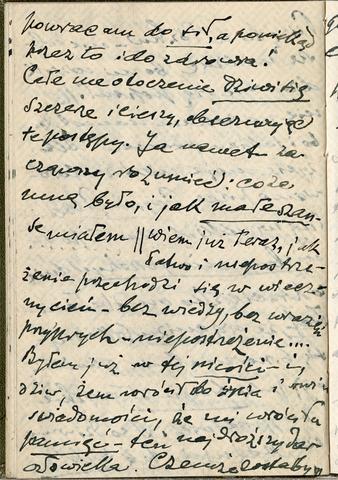 powracam do sił, a poniekąd
przez to i do zdrowia!
Całe me otoczenie dziwi się
szczerze i cieszy, obserwując
te postępy. Ja nawet za-
czynam rozumieć: co ze
mną było, i jak małe szan-
se miałem || wiem już teraz, jak
łatwo i niepostrze-
żenie przechodzi się w wiecz-
ny cień – bez wiedzy, bez wrażeń
przykrych – niepostrzeżenie...
Byłem już w tej nicości – i,
dziw, żem wrócił do życia i
świadomości, że mi wróciła
pamięć – ten najdroższy dar
człowieka. Czemże